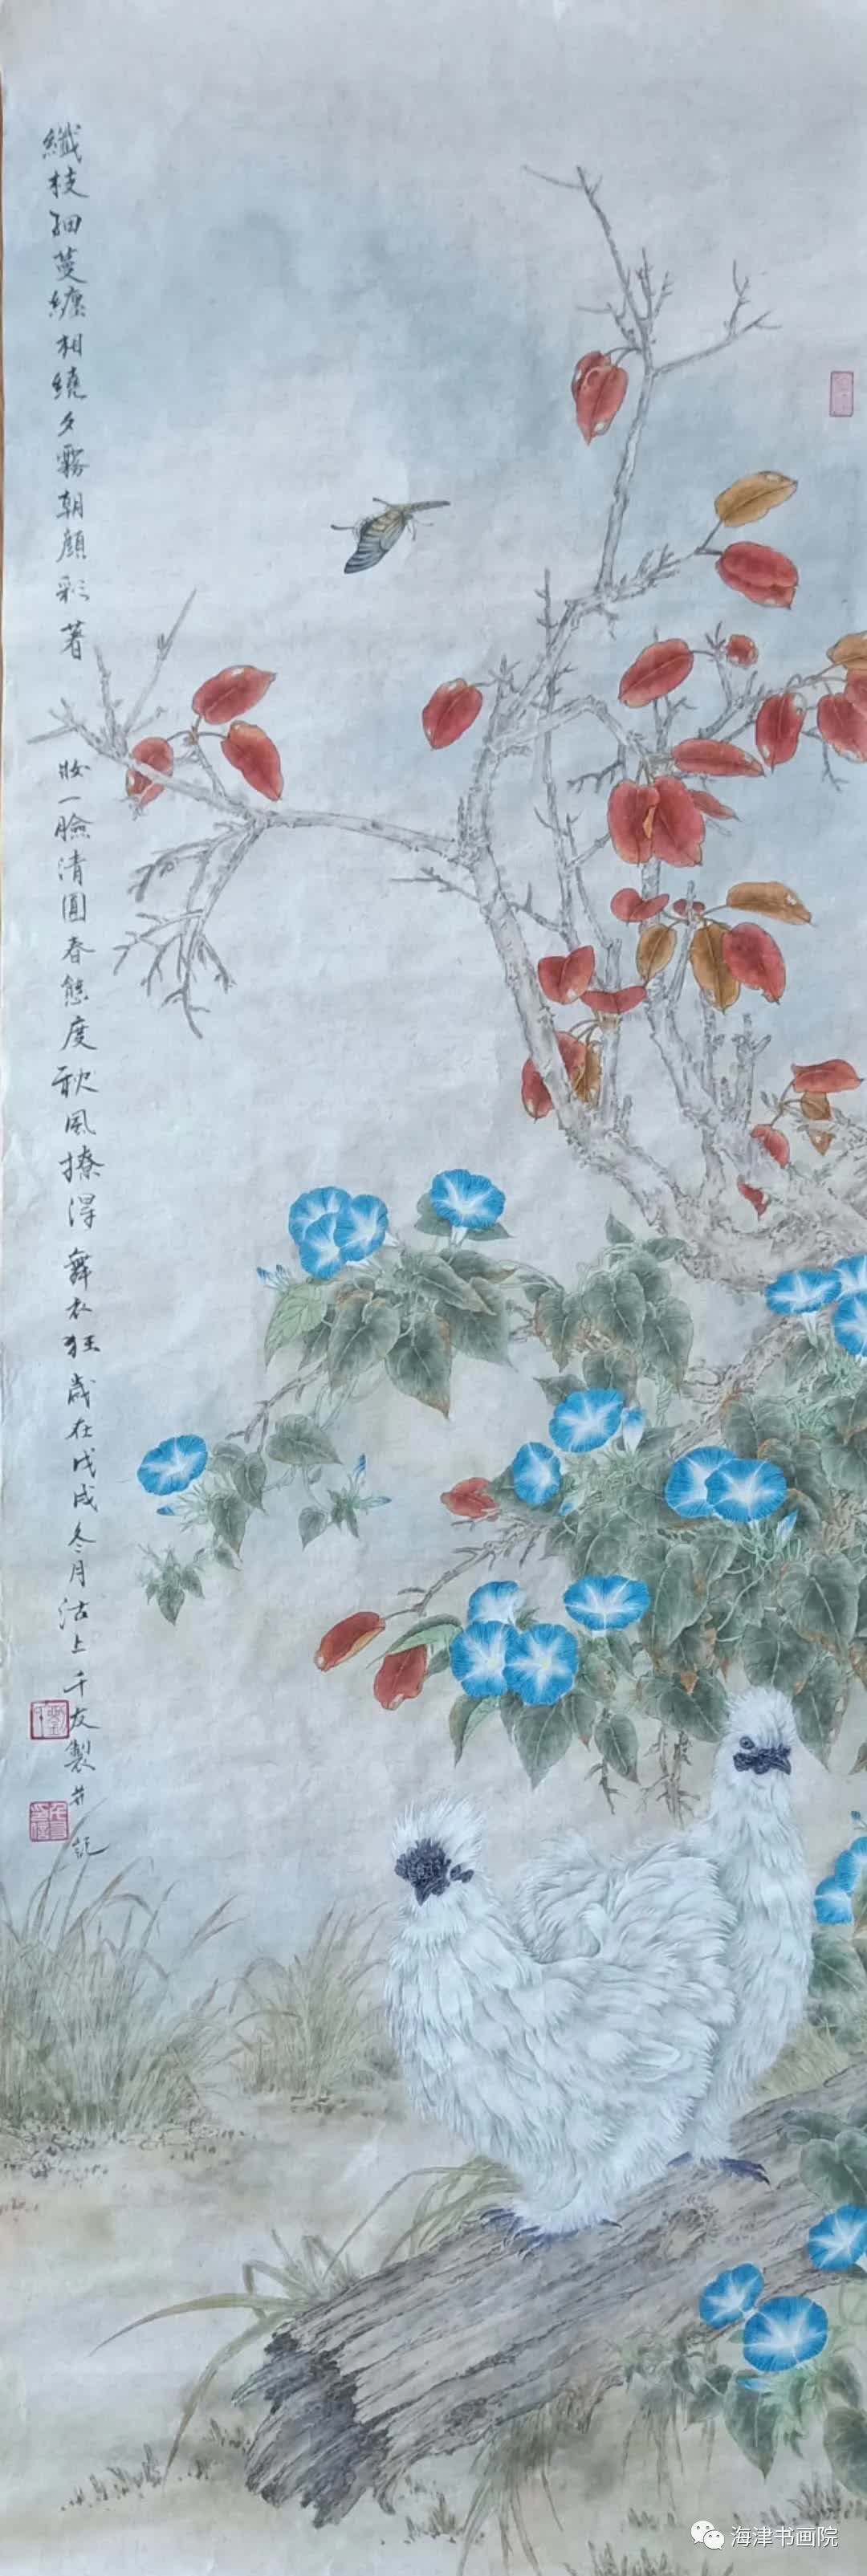 纖枝細蔓纏相繞夕霧朝顏彩著妝一臉清圓春態度秋風撩得舞衣狂歲在戊戌冬月沽上千友製并記
海津书画院